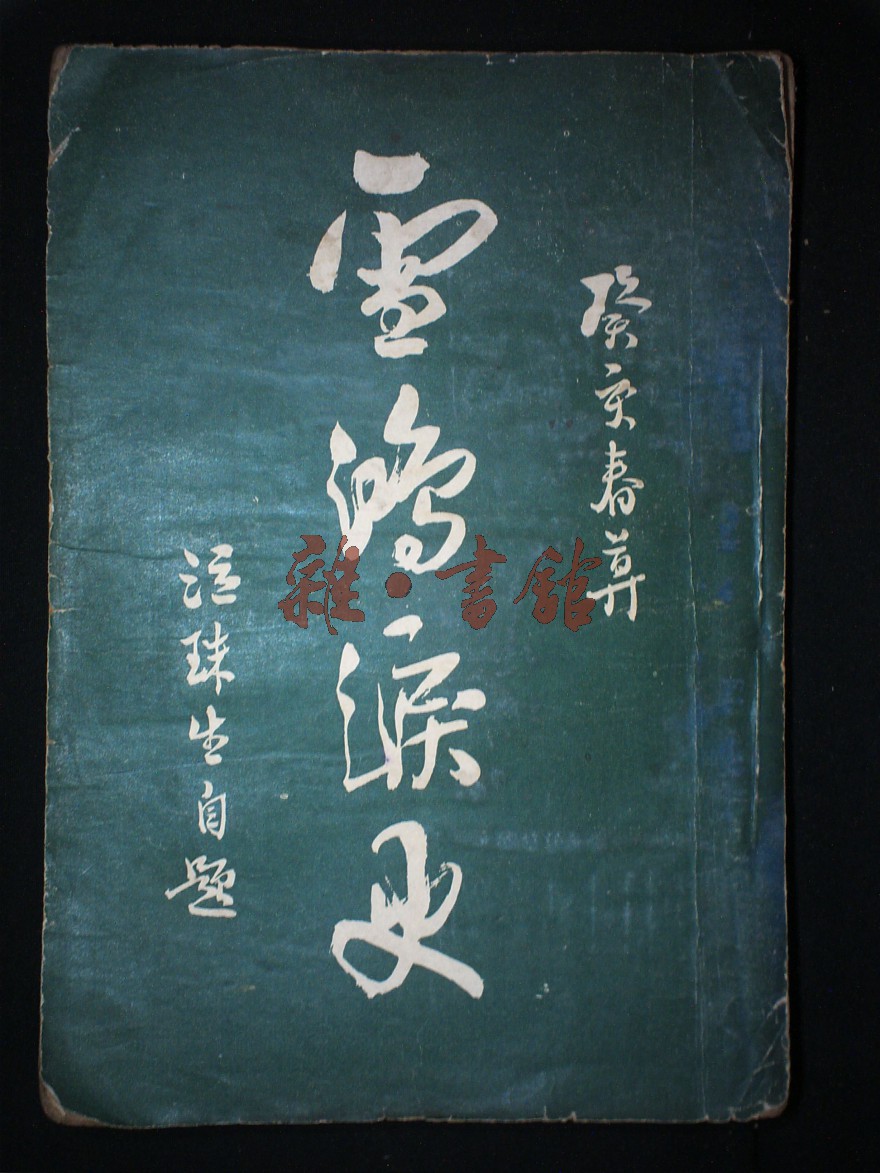 癸亥春暮
雪鴻淚史
泣珠生自題
雜·書館